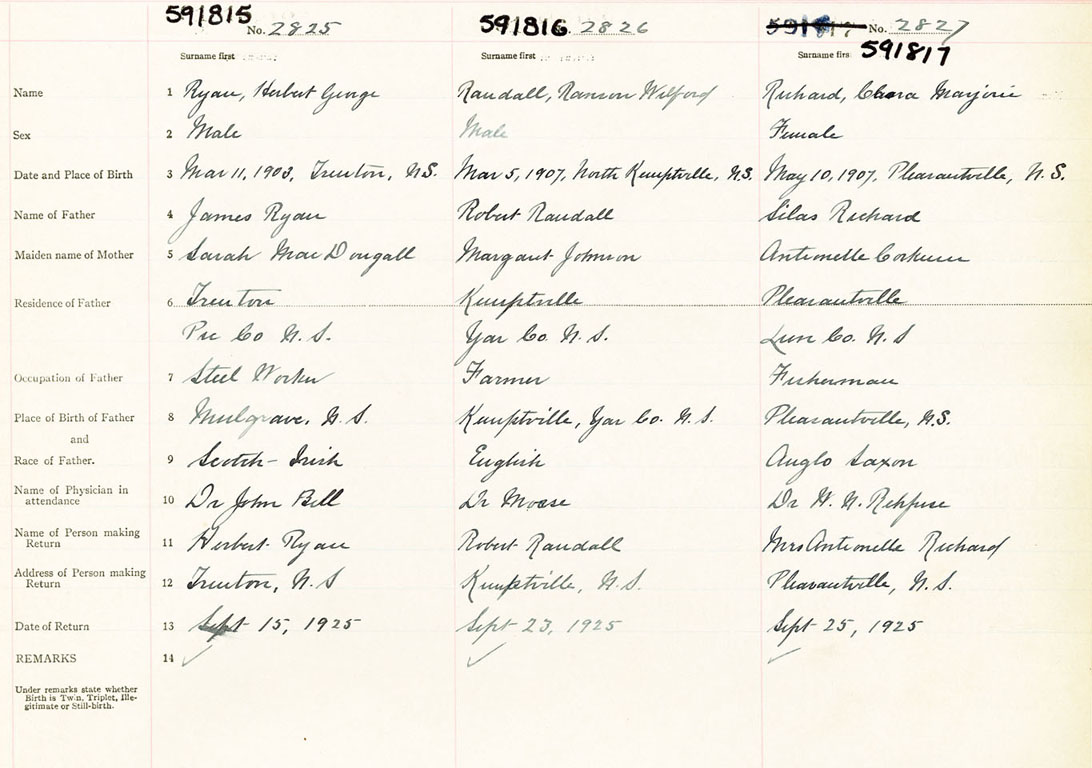 591815 591816 591817
No. 2825 2826 No. 2827
Surname first Surname first Surname first 591817
Name 1 Ryan, Herbert George Randall, Ranson Wilford Richard, Clara Marjorie
Sex 2 Male Male Female
Date and Place of Birth 3 Mar 11, 1903, Trenton, N.S. Mar 5, 1907, North Kemptville, N.S. May 10, 1907, Pleasantville, N.S.
Name of Father 4 James Ryan Robert Randall Silas Richard
Maiden name of Mother 5 Sarah MacDougall Margaret Johnson Antionelle Corkum
Residence of Father 6 Trenton Kemptville Pleasantville
Pic Co N.S. Yar Co. N.S. Lun Co. N.S
Occupation of Father 7 Steel Worker Farmer Fisherman
Place of Birth of Father 8 Mulgrave, N.S. Kemptville, Yar Co. N.S. Pleasantville, N.S.
and
Race of Father. 9 Scotch-Irish English Anglo Saxon
Name of Physician in
attendance 10 Dr John Bell Dr Moase Dr W. N. Rehfuse
Name of Person making
Return 11 Herbert Ryan Robert Randall Mrs Antionelle Richard
Address of Person making
Return 12 Trenton, N.S Kemptville, N.S. Pleasantville, N.S.
Date of Return 13 Sept 15, 1925 Sept 23, 1925 Sept 25, 1925
REMARKS 14
Under remarks state whether
Birth is Twin, Triplet, Ille-
gitimate or Still-birth.